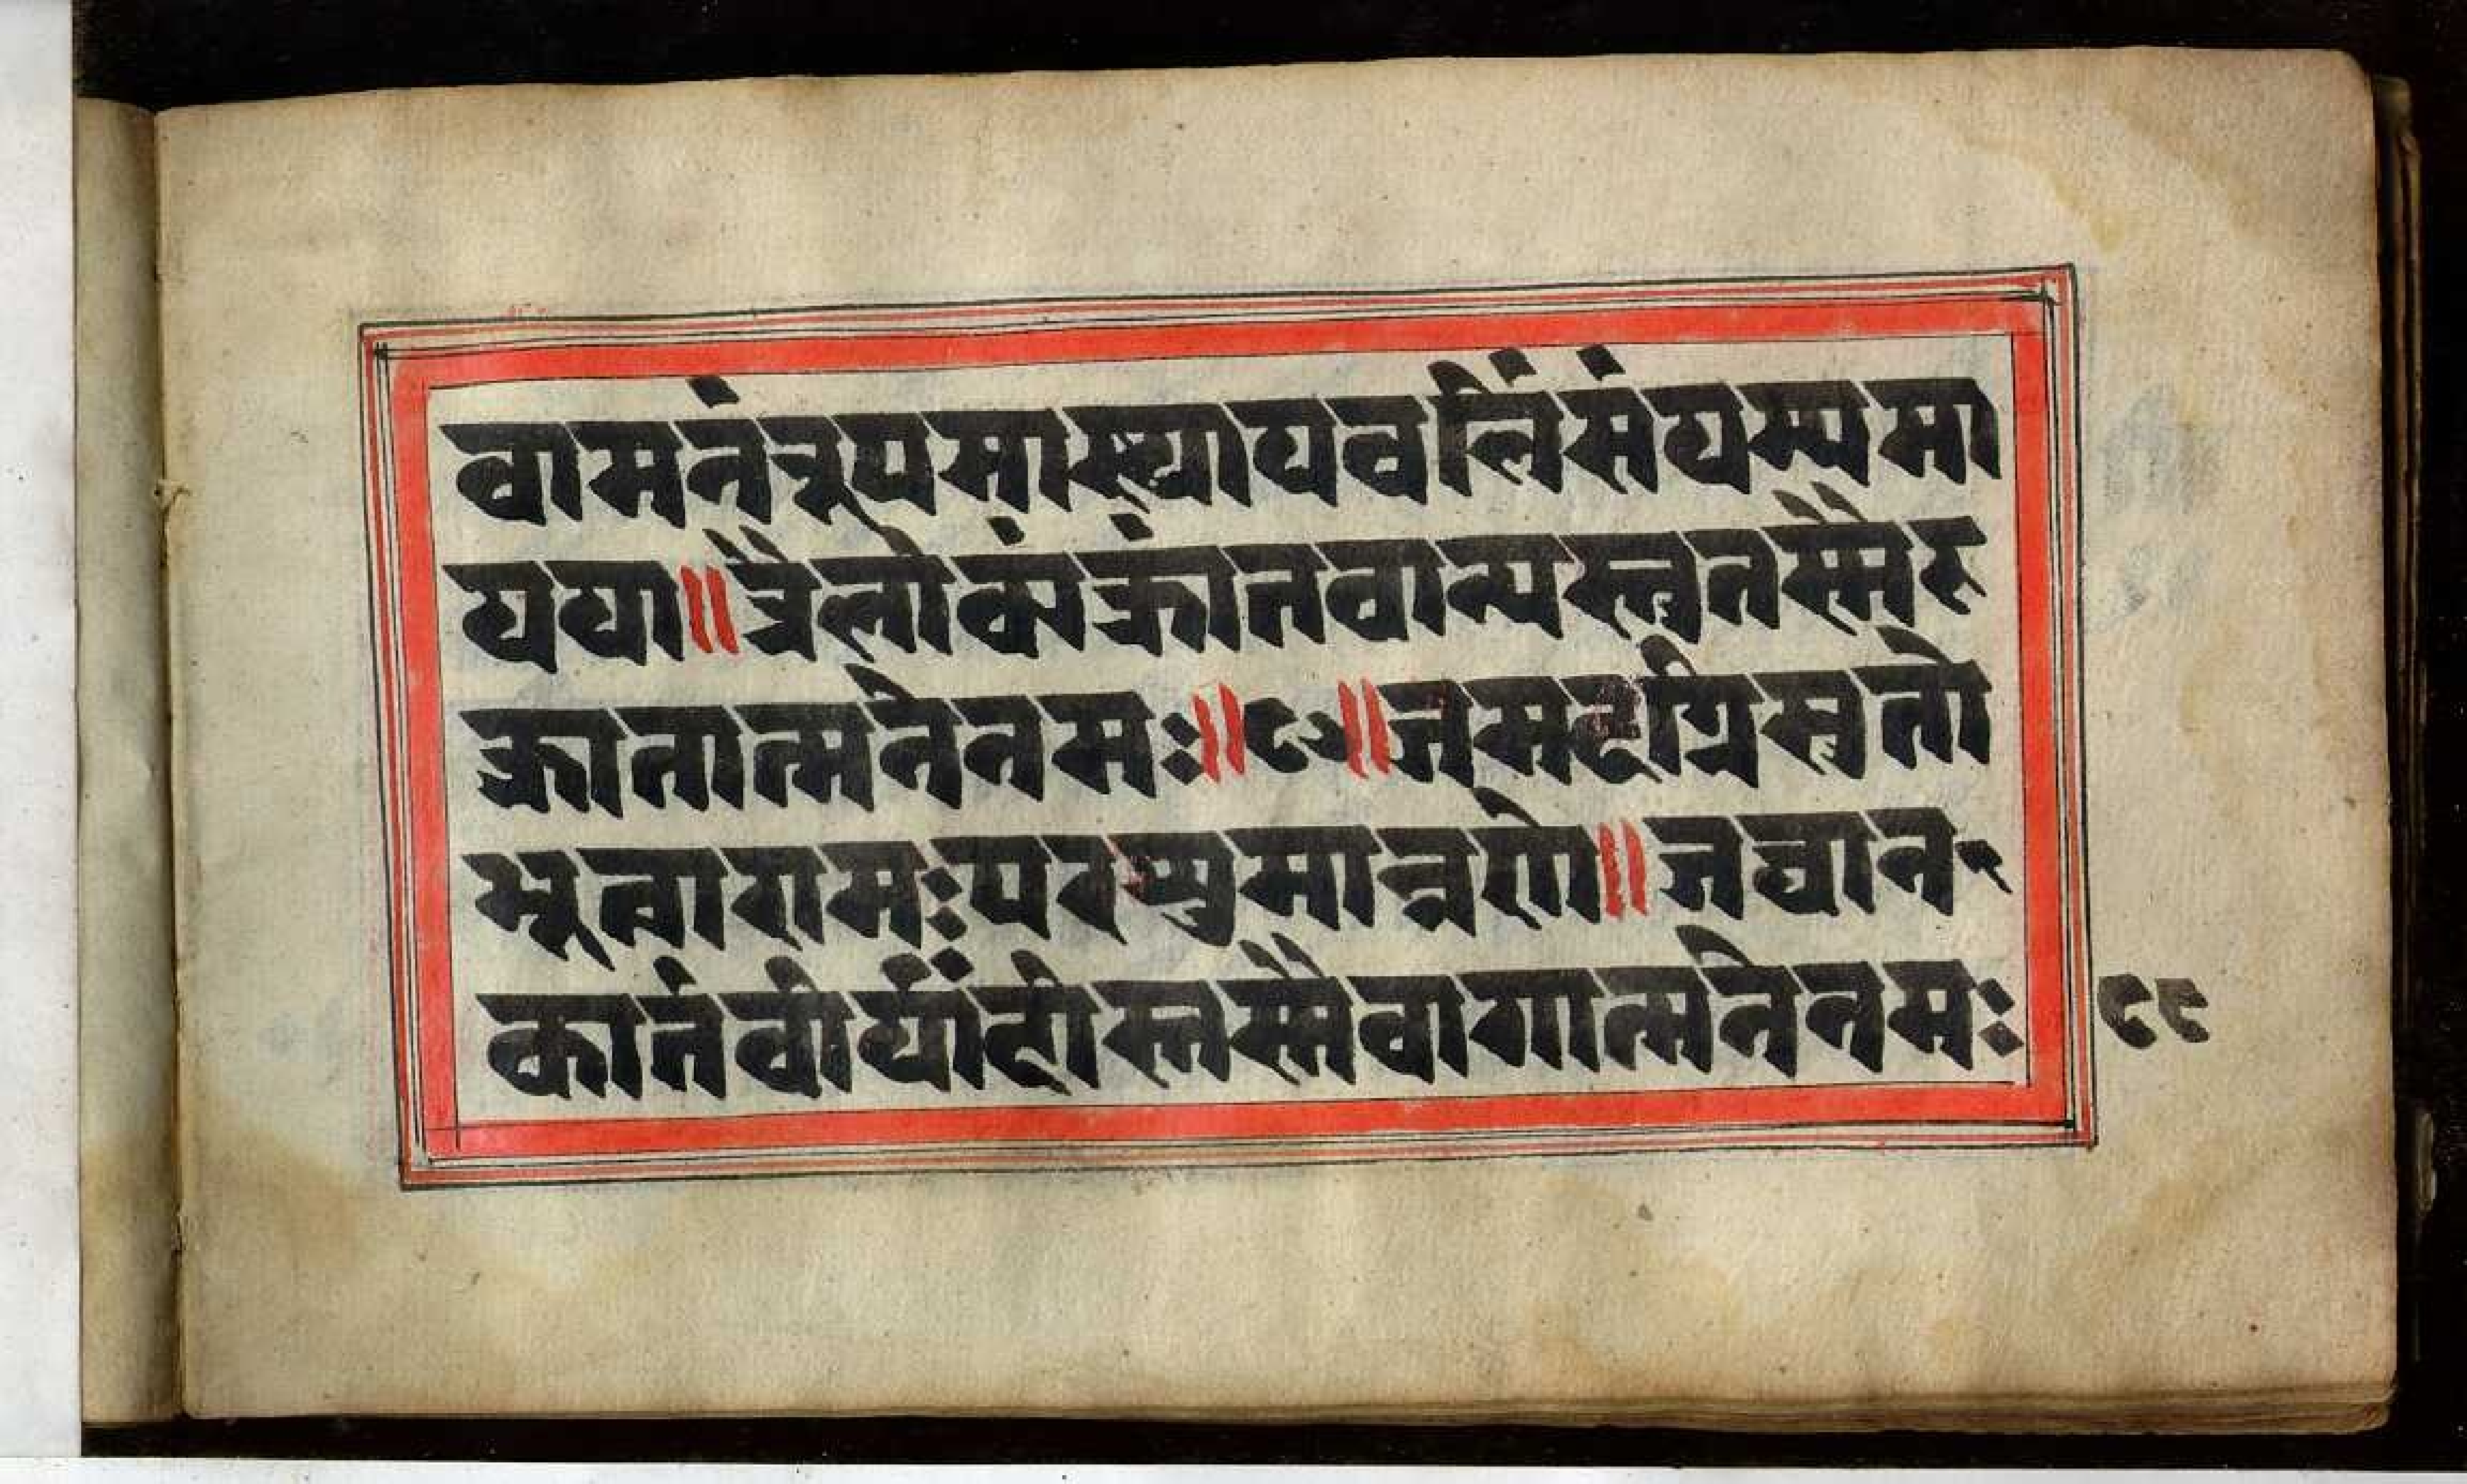 वामनंरूपमास्थायवलिंसंयम्यमा
यया॥त्रैलोक्यंक्रांतवान्यस्तुतस्मैरु
क्रातात्मनेनमः॥९०॥जमदग्निसुतो
भूत्वारामःपरशुमान्नरो॥जघान
कार्तवीर्यांदीस्तस्मैवागात्मनेनमः ९१